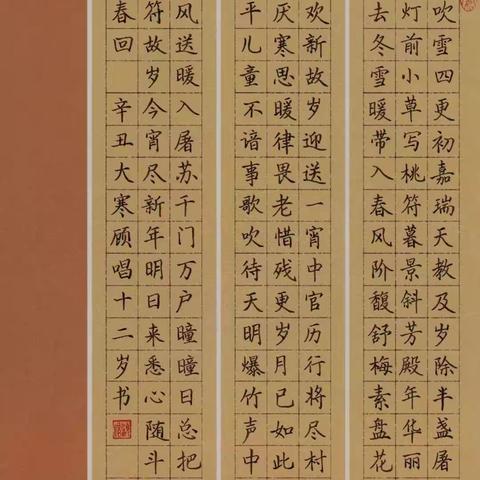 吹雪四更初嘉瑞天教及岁除半盏屠
灯前小草写桃符暮景斜芳殿年华丽
去冬雪暖带入春风阶馥舒梅素盘花
欢新故岁迎送一宵中官历行将尽村
厌寒思暖律畏老惜残更岁月已如此
平儿童不谙事歌吹待天明爆竹声中
风送暖入屠苏千门万户曈曈日总把
符故岁今宵尽新年明日来悉心随斗
春回 辛丑大寒顾唱十二岁书